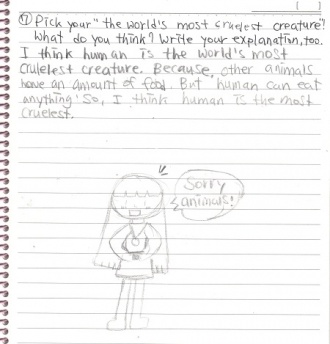 ⑦ Pick your "the world's most cruelest creature"!
What do you think? Write your explanation, too.
I think human is the world's most
crulelest creature. Because, other animals
have an amount of food. But human can eat
anything! So, I think human is the most
cruelest.
Sorry
animals!